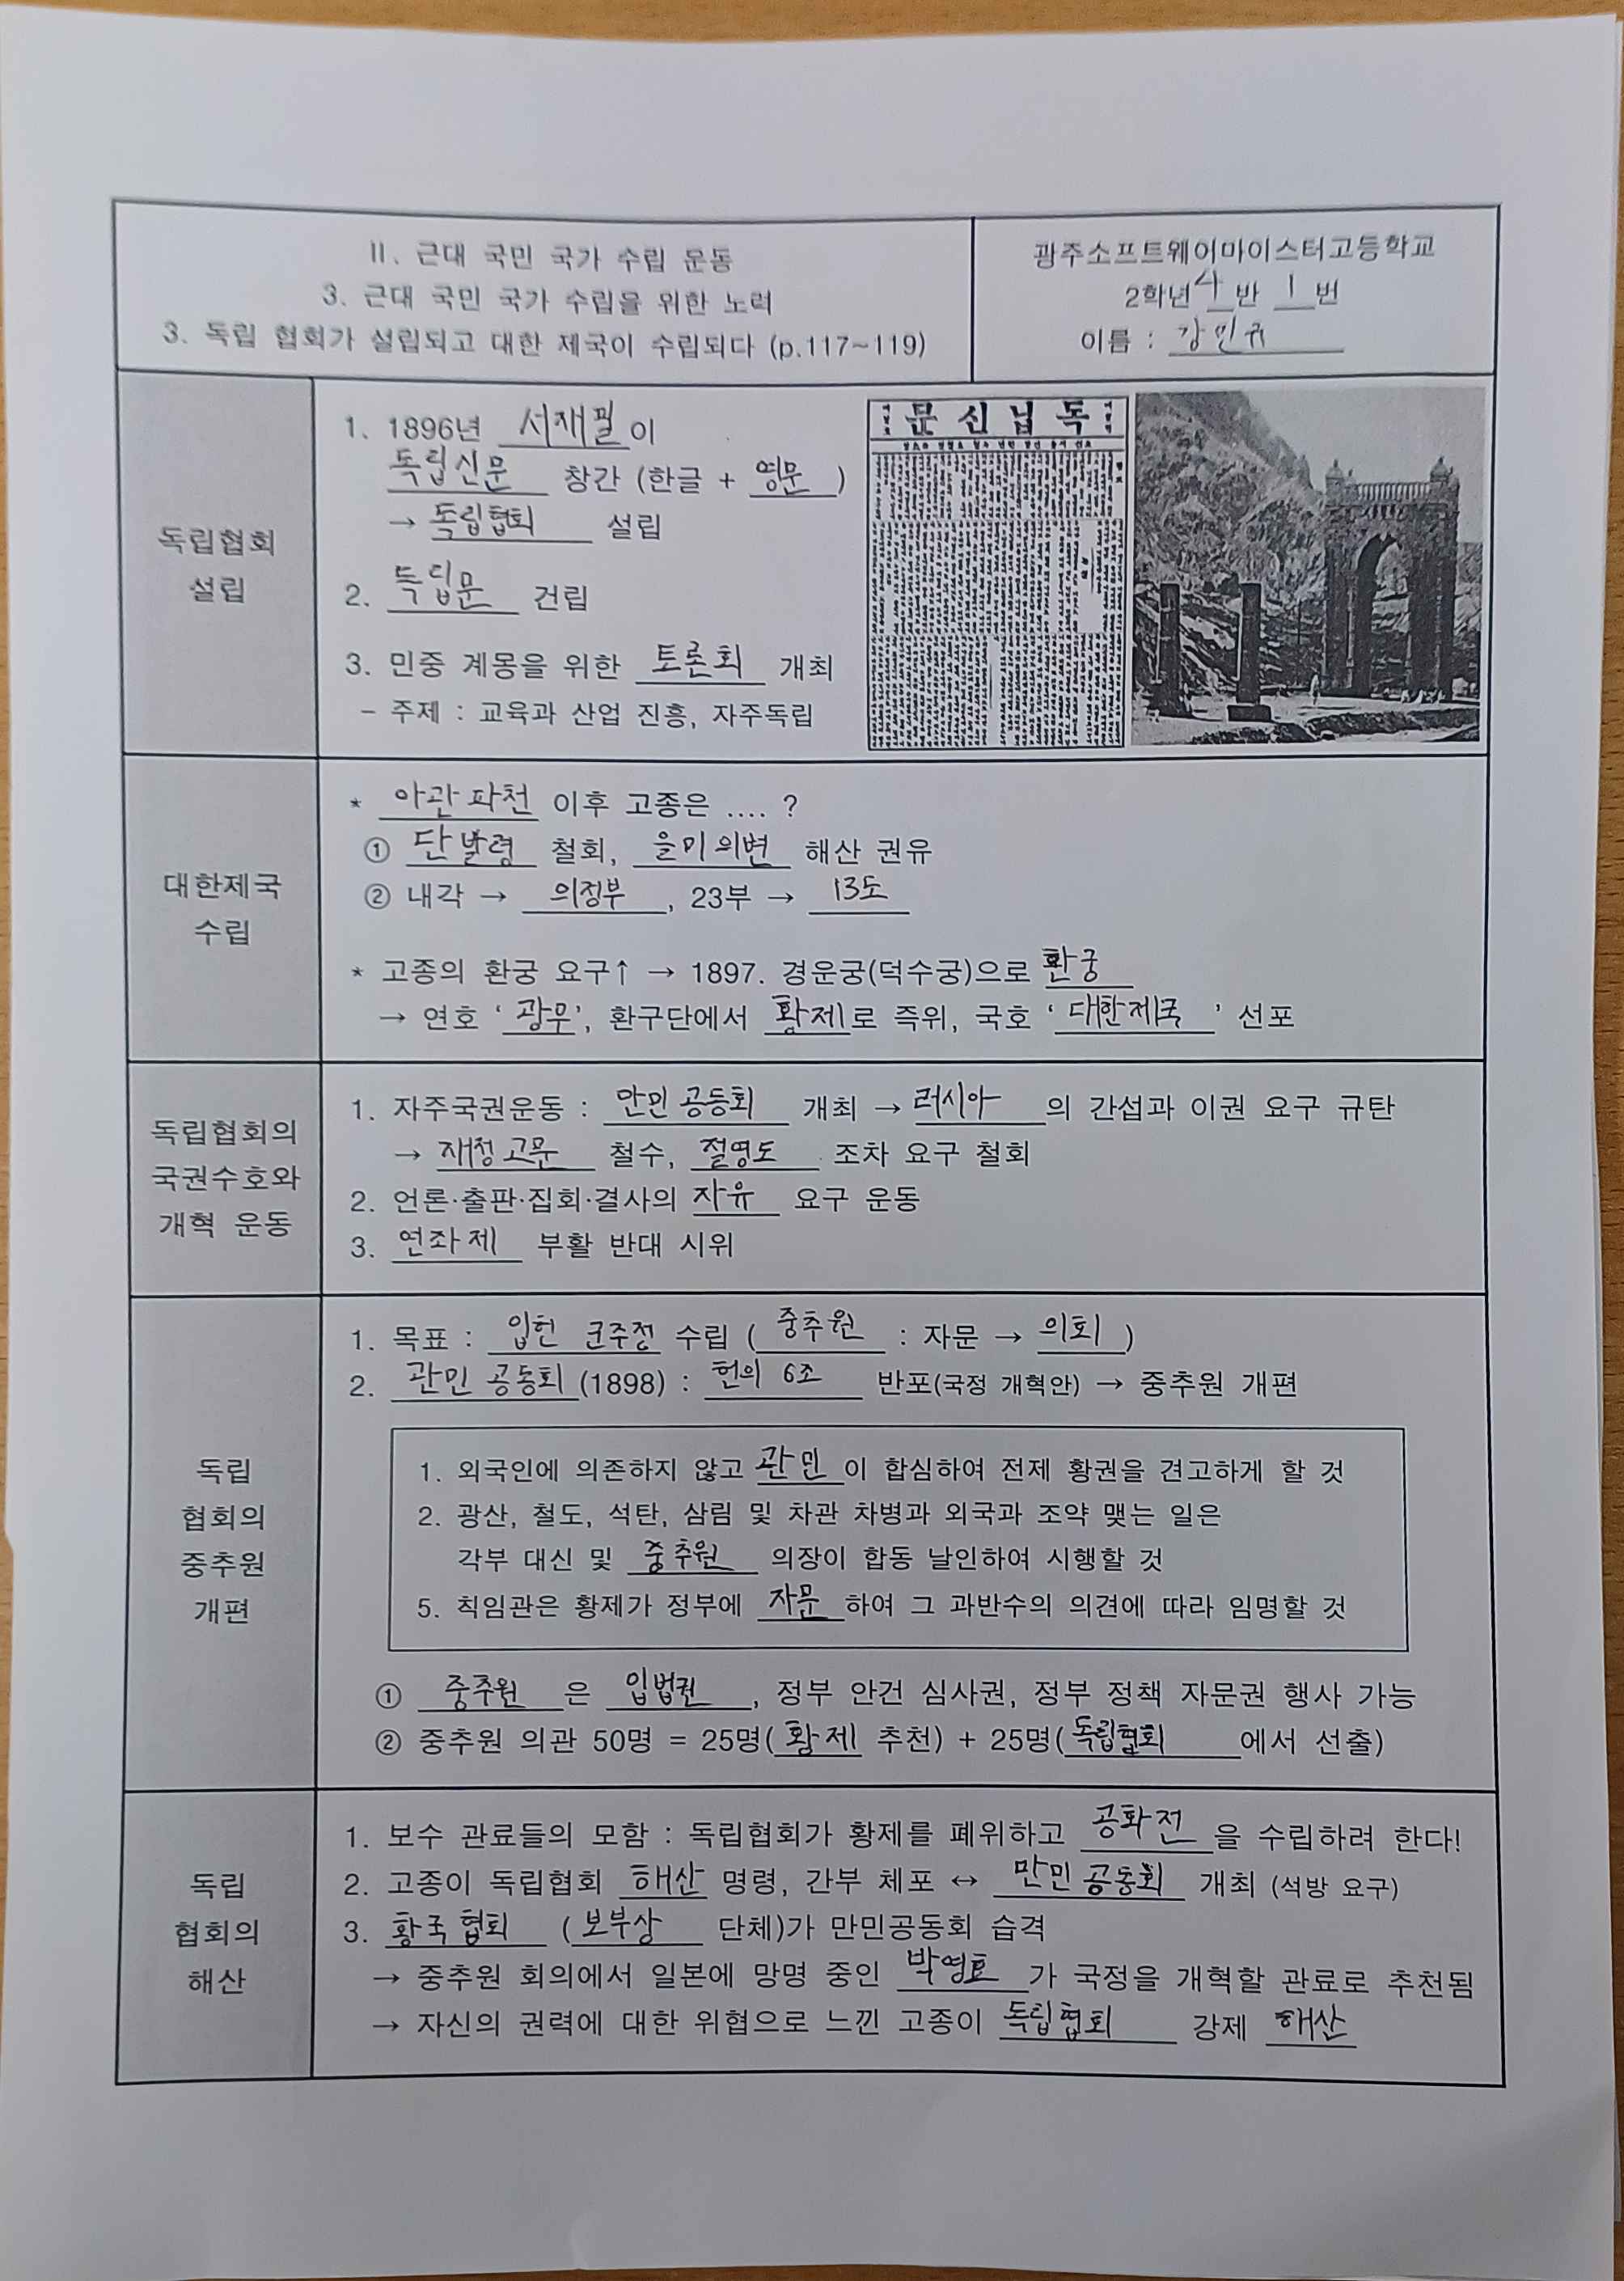 II. 근대 국민 국가 수립 운동
3. 근대 국민 국가 수립을 위한 노력
3. 독립 협회가 설립되고 대한 제국이 수립되다 (p.117~119)
광주소프트웨어마이스터고등학교
2학년 4 반 1 번
이름 : 강민규
독립협회
설립
1. 1896년 서재필이
독립신문 창간 (한글 + 영문)
→ 독립협회 설립
2. 독립문 건립
3. 민중 계몽을 위한 토론회 개최
- 주제 : 교육과 산업 진흥, 자주독립
문신닙독
대한제국
수립
* 아관파천 이후 고종은 .... ?
① 단발령 철회, 을미의변 해산 권유
② 내각 → 의정부, 23부 → 13도
* 고종의 환궁 요구↑ → 1897. 경운궁(덕수궁)으로 환궁
→ 연호 ‘광무’, 환구단에서 황제로 즉위, 국호 ‘대한제국’ 선포
독립협회의
국권수호와
개혁 운동
1. 자주국권운동 : 만민 공동회 개최 → 러시아의 간섭과 이권 요구 규탄
→ 재정 고문 철수, 절영도 조차 요구 철회
2. 언론·출판·집회·결사의 자유 요구 운동
3. 연좌제 부활 반대 시위
독립
협회의
중추원
개편
1. 목표 : 입헌 군주정 수립 (중추원 : 자문 → 의회)
2. 관민 공동회(1898) : 헌의 6조 반포(국정 개혁안) → 중추원 개편
1. 외국인에 의존하지 않고 관민이 합심하여 전제 황권을 견고하게 할 것
2. 광산, 철도, 석탄, 삼림 및 차관 차병과 외국과 조약 맺는 일은
각부 대신 및 중추원 의장이 합동 날인하여 시행할 것
5. 칙임관은 황제가 정부에 자문하여 그 과반수의 의견에 따라 임명할 것
① 중추원은 입법권, 정부 안건 심사권, 정부 정책 자문권 행사 가능
② 중추원 의관 50명 = 25명(황제 추천) + 25명(독립협회에서 선출)
독립
협회의
해산
1. 보수 관료들의 모함 : 독립협회가 황제를 폐위하고 공화전을 수립하려 한다!
2. 고종이 독립협회 해산 명령, 간부 체포 ↔ 만민 공동회 개최 (석방 요구)
3. 황국협회 (보부상 단체)가 만민공동회 습격
→ 중추원 회의에서 일본에 망명 중인 박영효가 국정을 개혁할 관료로 추천됨
→ 자신의 권력에 대한 위협으로 느낀 고종이 독립협회 강제 해산